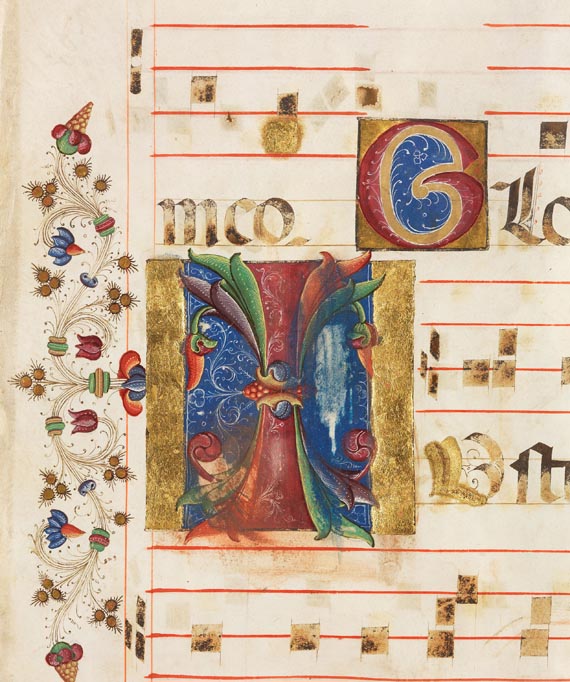 meo. G Lo
I Ost